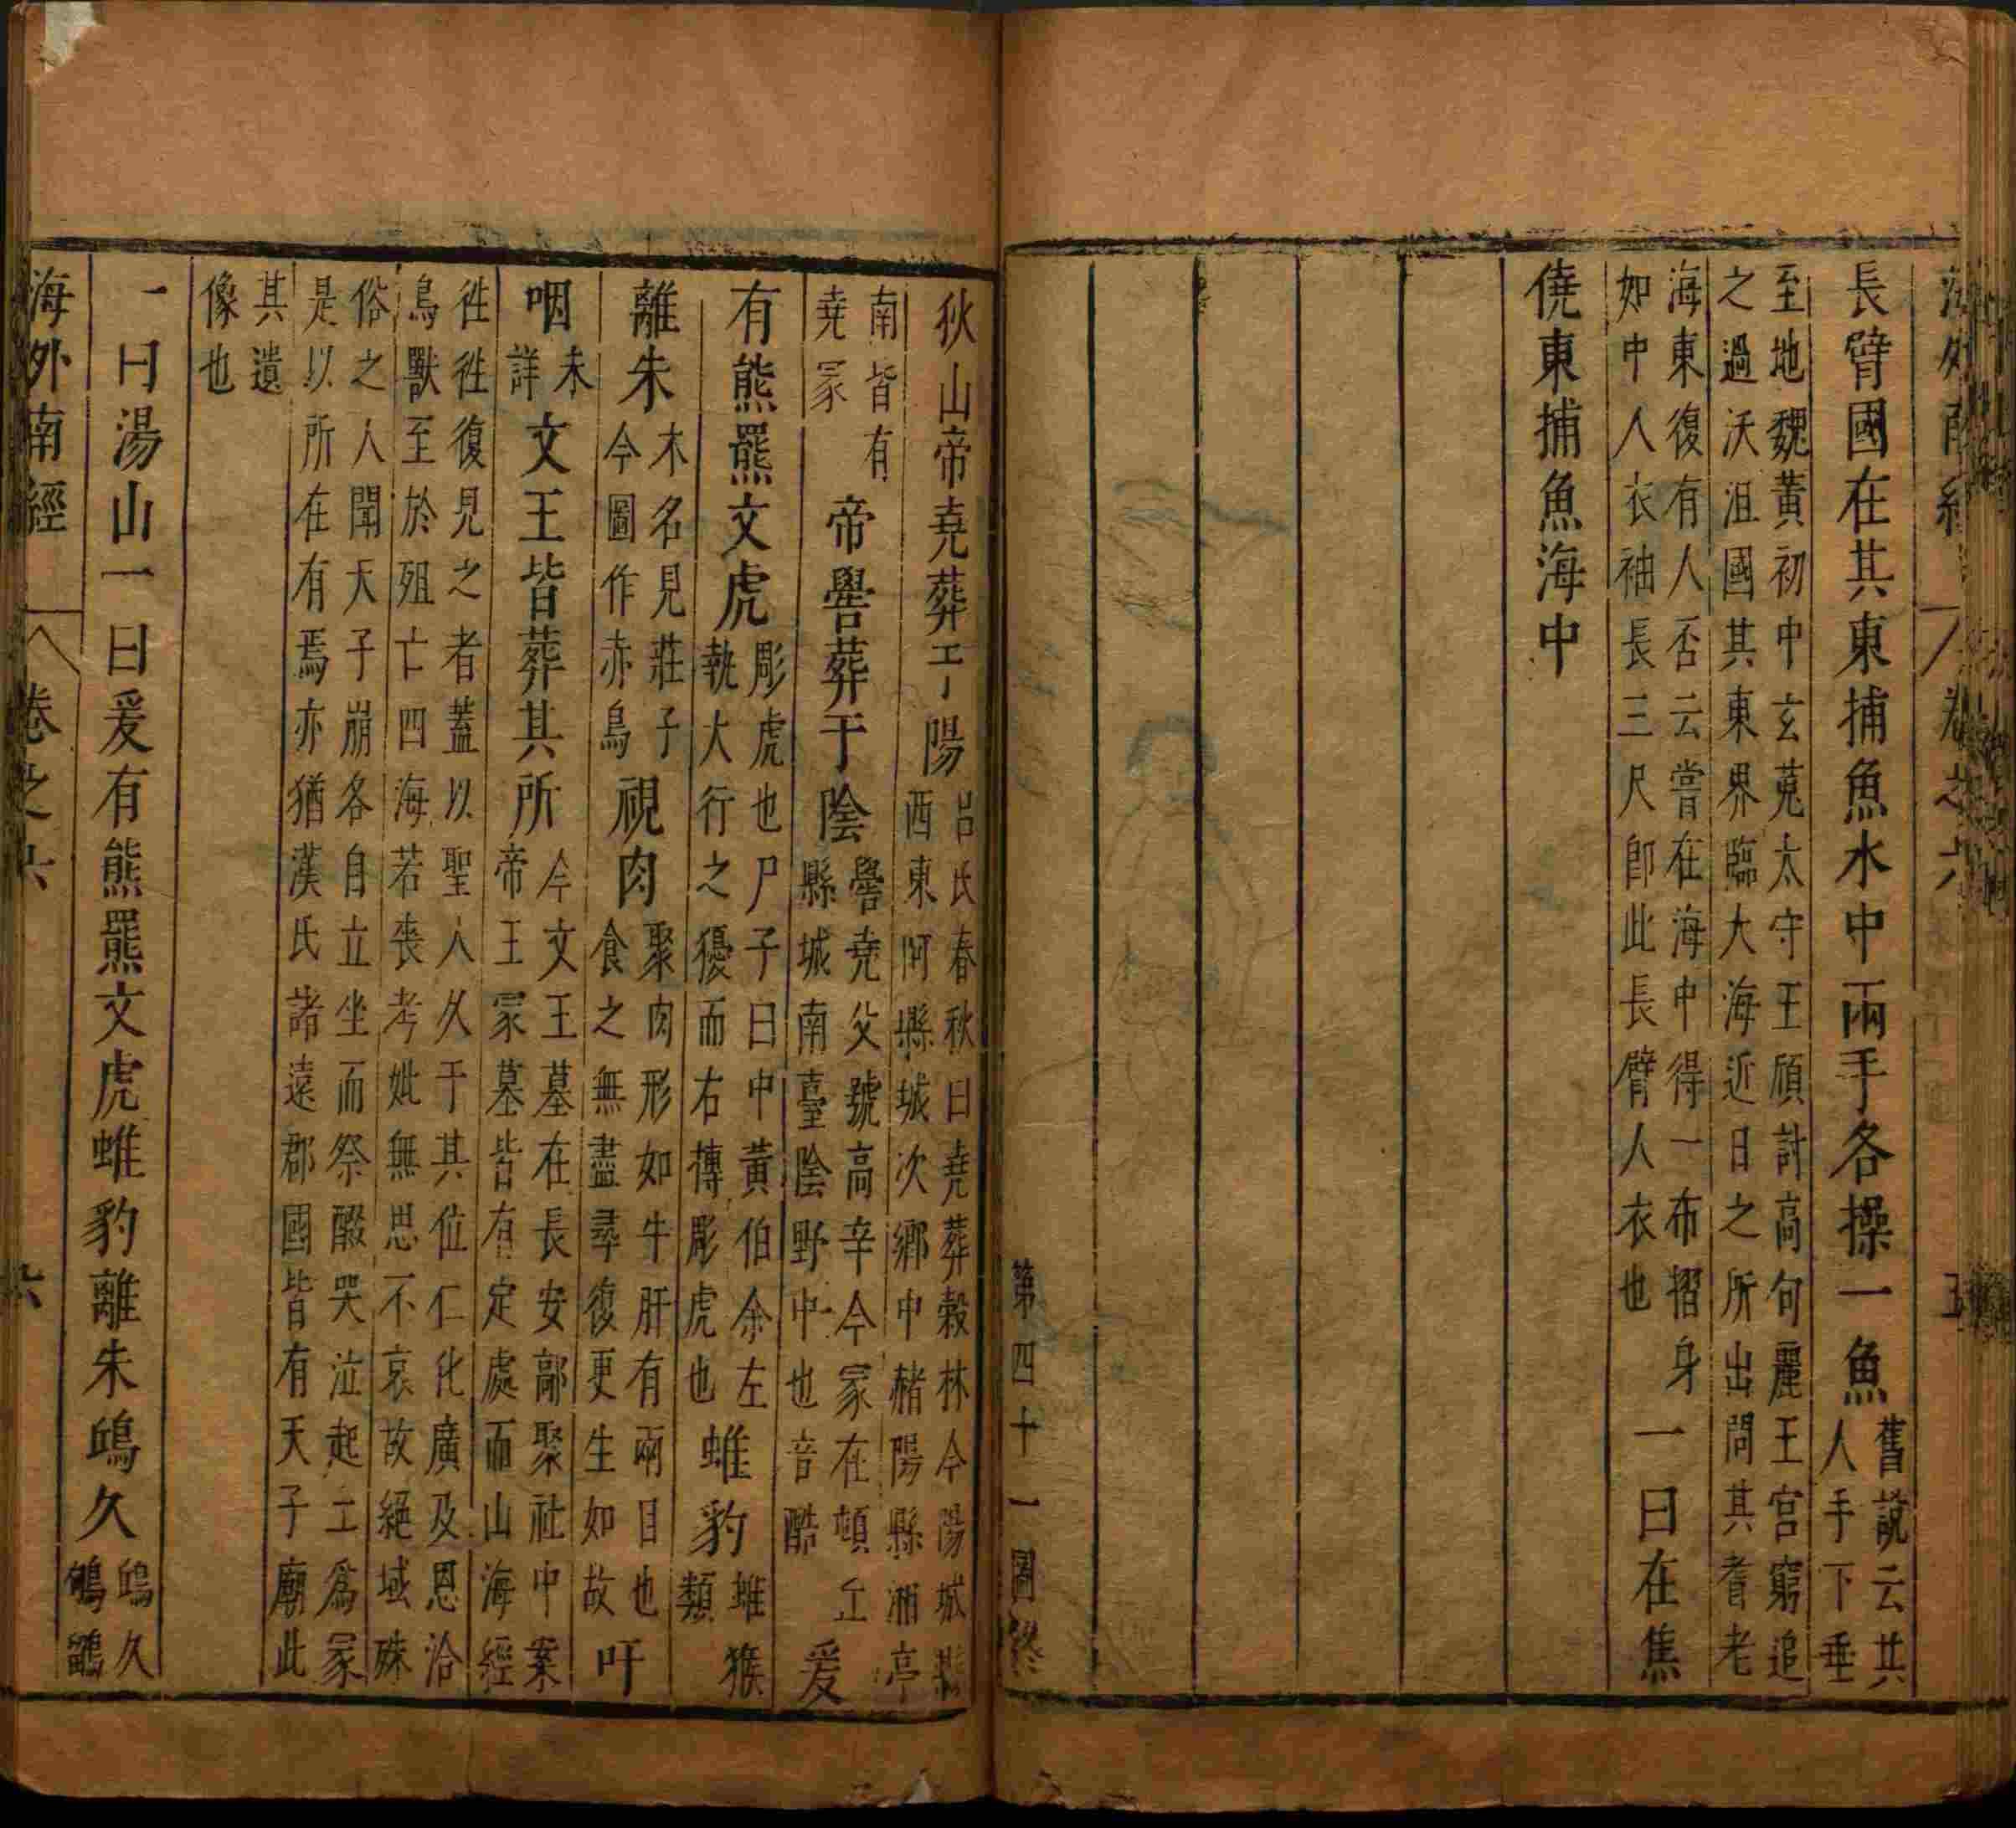 海外南經 卷之六 五
長臂國在其東捕魚水中兩手各操一魚舊說云其人手下垂
至地魏黃初中玄菟太守王頎討高句麗王宮窮追
之過沃沮國其東界臨大海近日之所出問其耆老
海東復有人否云嘗在海中得一布褶身
如中人衣袖長三尺卽此長臂人衣也一曰在焦
僥東捕魚海中
第四十一圖終
狄山帝堯葬于陽呂氏春秋曰堯葬穀林今陽城縣
西東阿縣城次鄉中赭陽縣湘亭
南皆有
堯冢帝嚳葬于陰嚳堯父號高辛今冢在頓丘
縣城南臺陰野中也音酷爰
有熊羆文虎彫虎也尸子曰中黃伯余左
執大行之獶而右搏彫虎也蜼豹蜼猴類
離朱木名見莊子今圖作赤鳥視肉聚肉形如牛肝有兩目也
食之無盡尋復更生如故吁
咽未詳文王皆葬其所今文王墓在長安鄗聚社中案
帝王冢墓皆有定處而山海經
徃徃復見之者蓋以聖人久于其位仁化廣及恩洽
鳥獸至於殂亡四海若喪考妣無思不哀故絕域殊
俗之人聞天子崩各自立坐而祭醊哭泣起工爲冢
是以所在有焉亦猶漢氏諸遠郡國皆有天子廟此
其遺
像也
一曰湯山一曰爰有熊羆文虎蜼豹離朱鴟久鴟久
鵂鶹
海外南經 卷之六 六